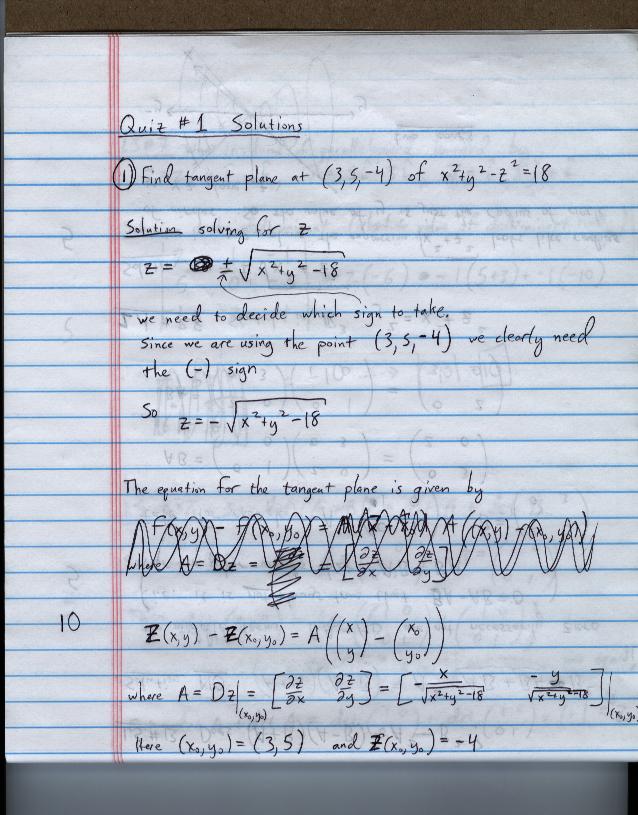 Quiz #1 Solutions
① Find tangent plane at (3,5,-4) of x²+y²-z²=18
Solution solving for z
z = ± √(x²+y²-18)
we need to decide which sign to take.
Since we are using the point (3,5,-4) we clearly need
the (-) sign
So z = - √(x²+y²-18)
The equation for the tangent plane is given by
where A = Dz = = [∂z/∂x ∂z/∂y]
10
Z(x,y) - Z(x₀,y₀) = A((x y) - (x₀ y₀))
where A = Dz|(x₀,y₀) = [∂z/∂x ∂z/∂y] = [-x/√(x²+y²-18) -y/√(x²+y²-18)]|(x₀,y₀)
Here (x₀,y₀) = (3,5) and Z(x₀,y₀) = -4